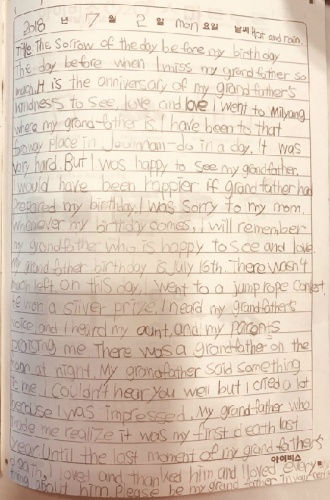 2018 년 7 월 2 일 mon 요일 날씨 Hot and rain
Title The Sorrow of the day before my birthday
The day before when I miss my grandfather so
much. It is the anniversary of my grandfather's
kindness to see, love and love I went to Milyang
where my grandfather is I have been to that
place in Jeollanam-do in a day. It was
very hard But I was happy to see my grandfather.
I would have been happier if grandfather had
prepared my birthday. I was sorry to my mom.
Whenever my birthday comes, I will remember
my grandfather who is happy to see and love.
My grandfather birthday is July 16th. There wasn't
much left on this day. I went to a jump rope contest
a silver prize. I heard my grandfather's
voice and I heard my aunt, and my parents
praising me There was a grandfather on the
moon at night. My grandfather said something
to me I couldn't hear you well but I cried a lot
because I was impressed. My grandfather who
made me realize it was my first death last
year until the last moment of my grandfather's
아이비스
death. I loved and thanked him and I loved every
thing about him Please be my grandfather in